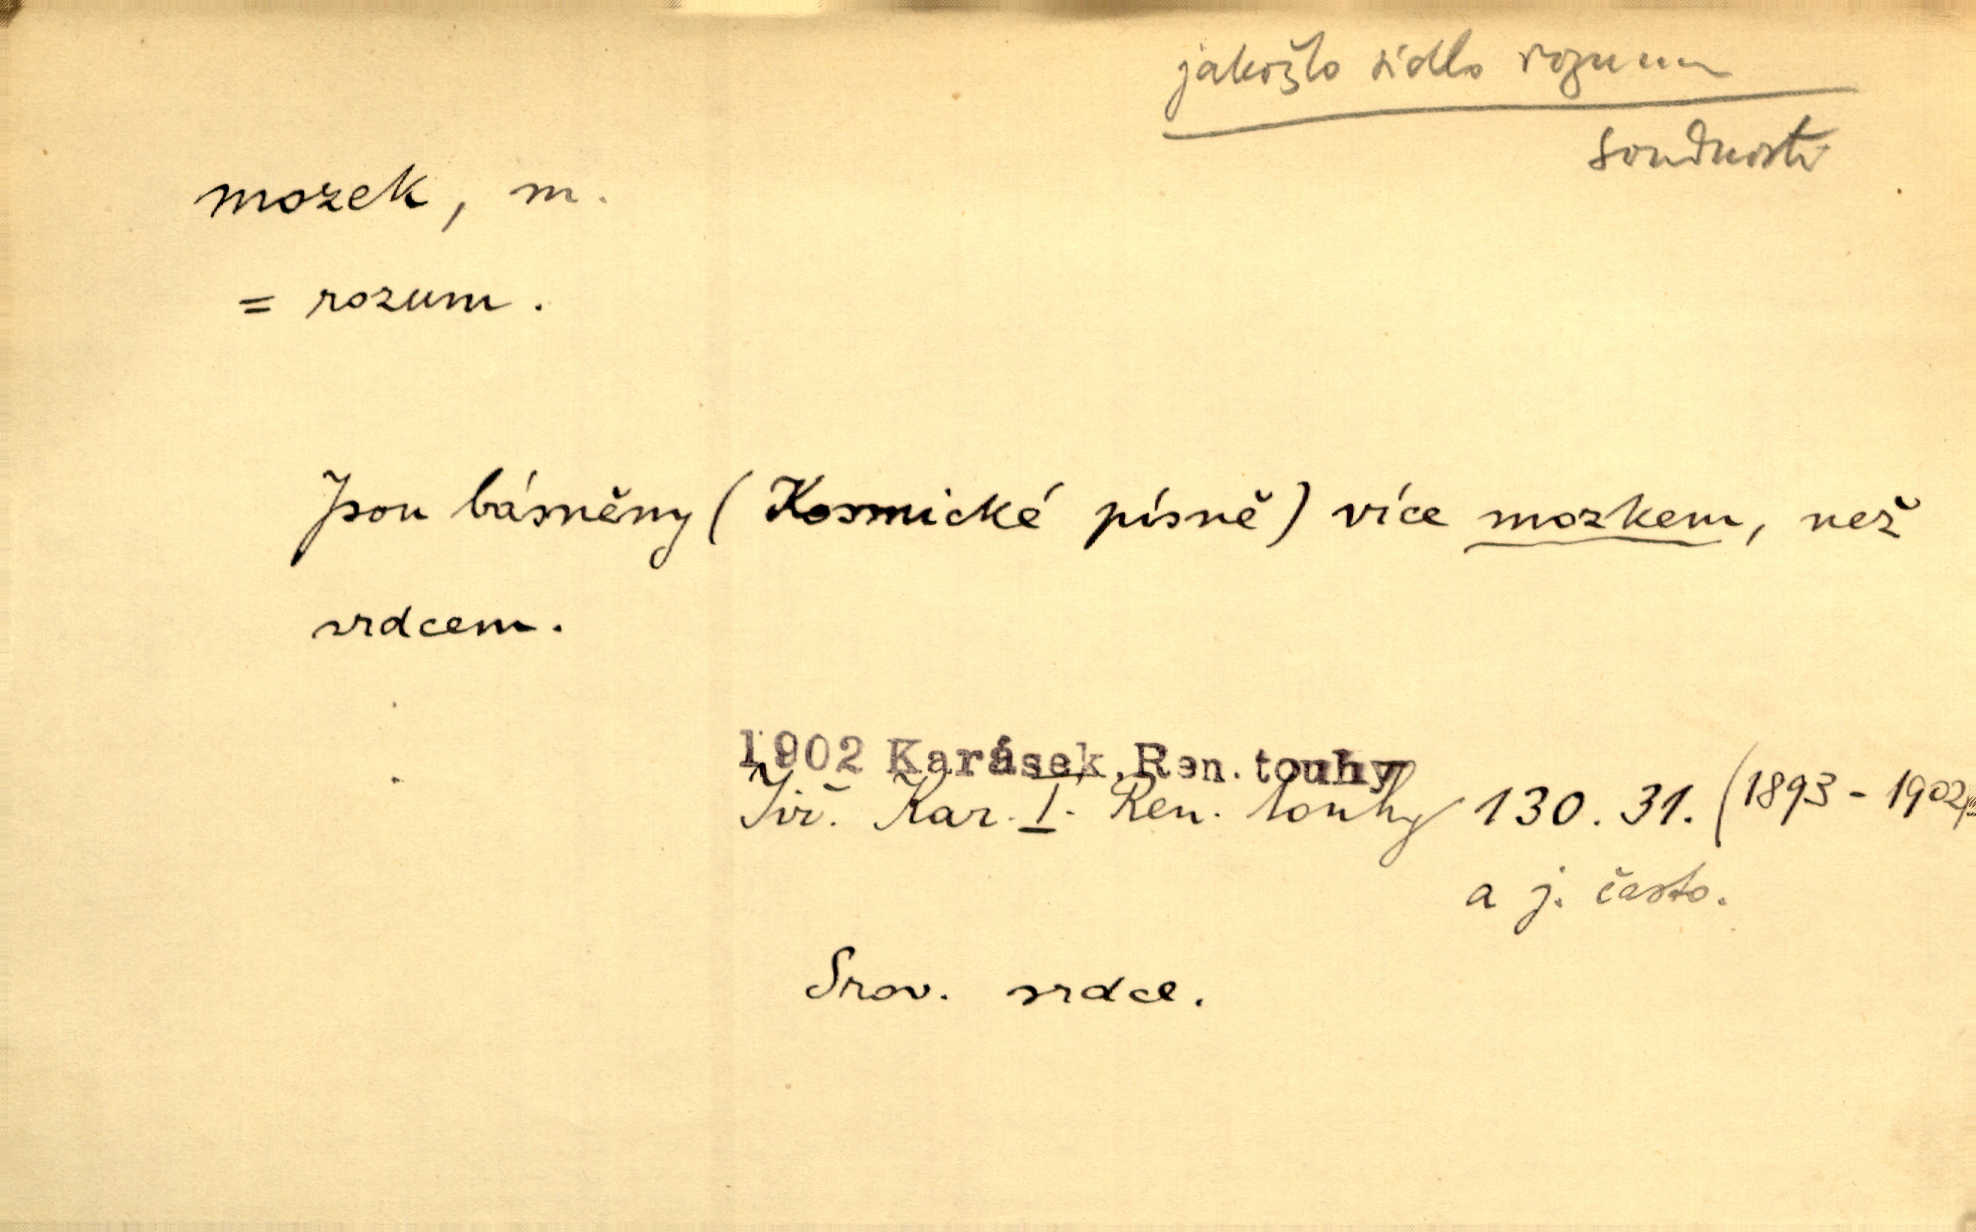 jakožto sídlo rozumu
soudnosti
mozek, m.
= rozum.
Jsou básněny (Kosmické písně) více mozkem, než
srdcem.
1902 Karásek, Ren. touhy
Jiř. Kar. I. Ren. touhy 130. 31. (1893 - 1902)
a j. často.
Srov. srdce.